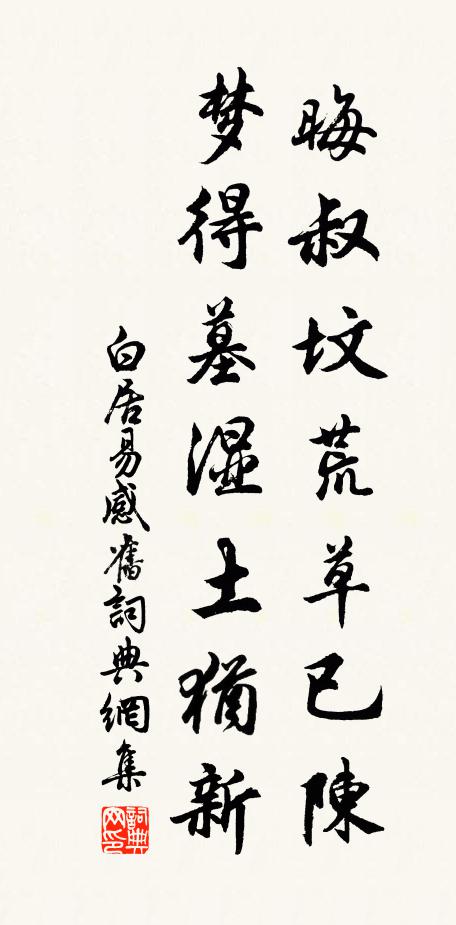 晦叔坟荒草已陳
梦得墓濕土猶新
白居易感舊詞典網集
詞典网印